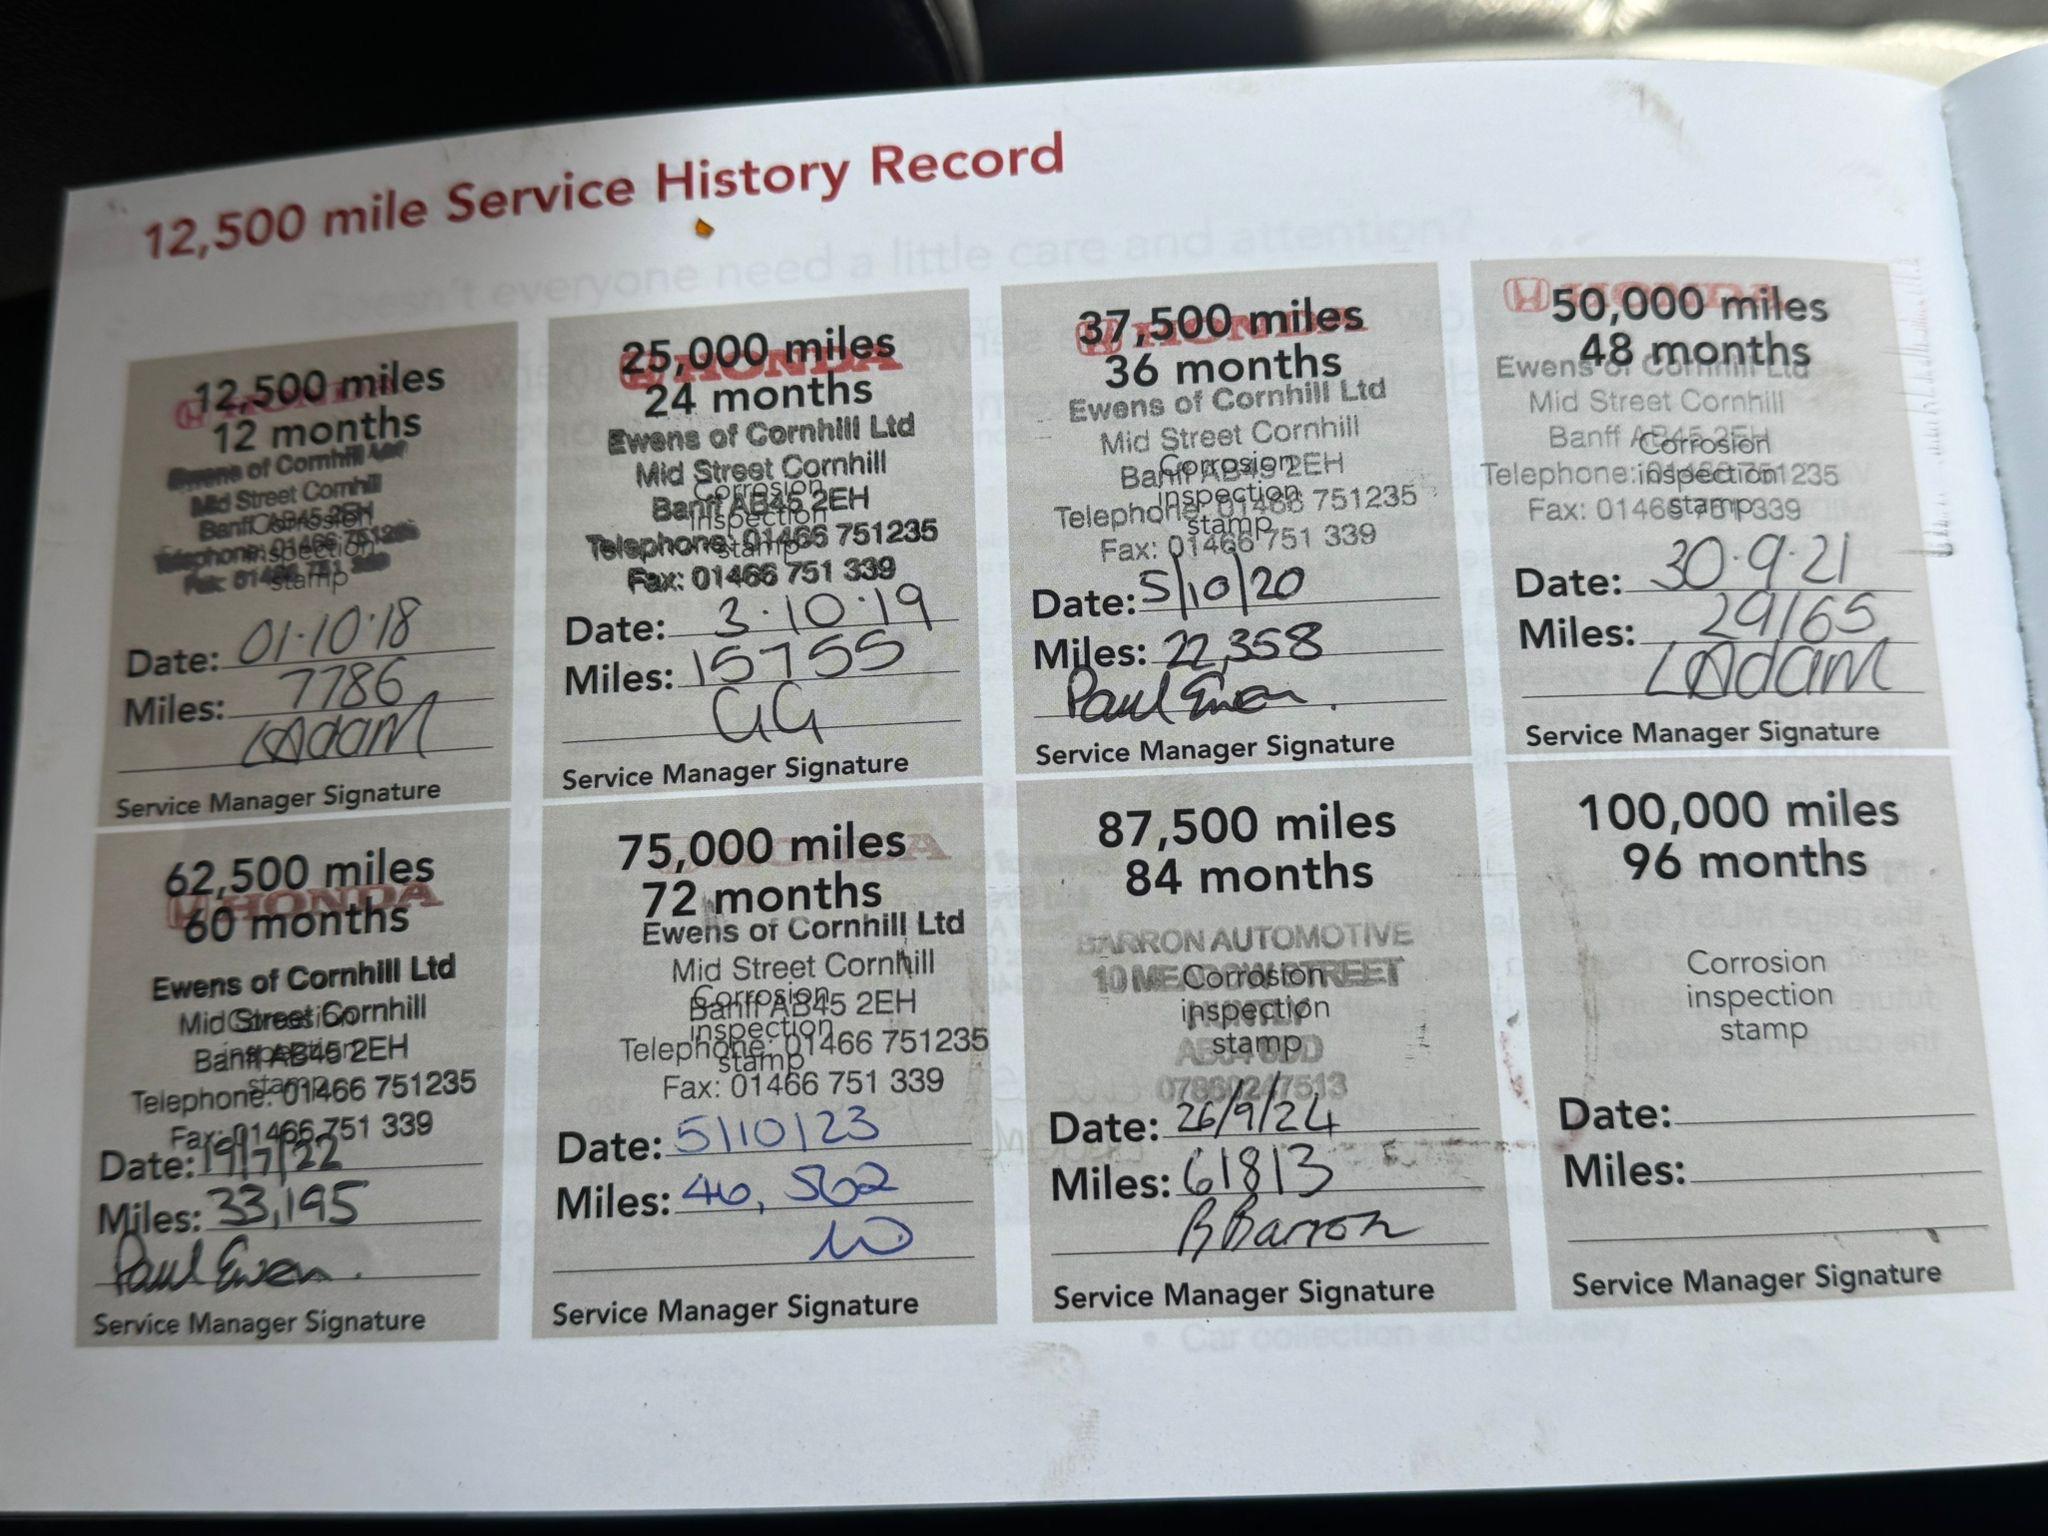 12,500 mile Service History Record
12,500 miles
12 months
HONDA
Ewens of Cornhill Ltd
Mid Street Cornhill
Banff AB45 2EH
Telephone: 01466 751235
Fax: 01466 751 339
Corrosion
inspection
stamp
Date: 01·10·18
Miles: 7786
LAdam
Service Manager Signature
25,000 miles
24 months
HONDA
Ewens of Cornhill Ltd
Mid Street Cornhill
Banff AB45 2EH
Telephone: 01466 751235
Fax: 01466 751 339
Corrosion
inspection
stamp
Date: 3·10·19
Miles: 15755
GG
Service Manager Signature
37,500 miles
36 months
HONDA
Ewens of Cornhill Ltd
Mid Street Cornhill
Banff AB45 2EH
Telephone: 01466 751235
Fax: 01466 751 339
Corrosion
inspection
stamp
Date: 5/10/20
Miles: 22,358
Paul Ewen.
Service Manager Signature
50,000 miles
48 months
HONDA
Ewens of Cornhill Ltd
Mid Street Cornhill
Banff AB45 2EH
Telephone: 01466 751235
Fax: 01466 751 339
Corrosion
inspection
stamp
Date: 30·9·21
Miles: 29165
LAdam
Service Manager Signature
62,500 miles
60 months
HONDA
Ewens of Cornhill Ltd
Mid Street Cornhill
Banff AB45 2EH
Telephone: 01466 751235
Fax: 01466 751 339
Corrosion
inspection
stamp
Date: 19/7/22
Miles: 33,195
Paul Ewen.
Service Manager Signature
75,000 miles
72 months
HONDA
Ewens of Cornhill Ltd
Mid Street Cornhill
Banff AB45 2EH
Telephone: 01466 751235
Fax: 01466 751 339
Corrosion
inspection
stamp
Date: 5/10/23
Miles: 46,562
Service Manager Signature
87,500 miles
84 months
BARRON AUTOMOTIVE
10 MEADOW STREET
HUNTLY
07860247513
Corrosion
inspection
stamp
Date: 26/9/24
Miles: 61813
B Barron
Service Manager Signature
100,000 miles
96 months
Corrosion
inspection
stamp
Date:
Miles:
Service Manager Signature